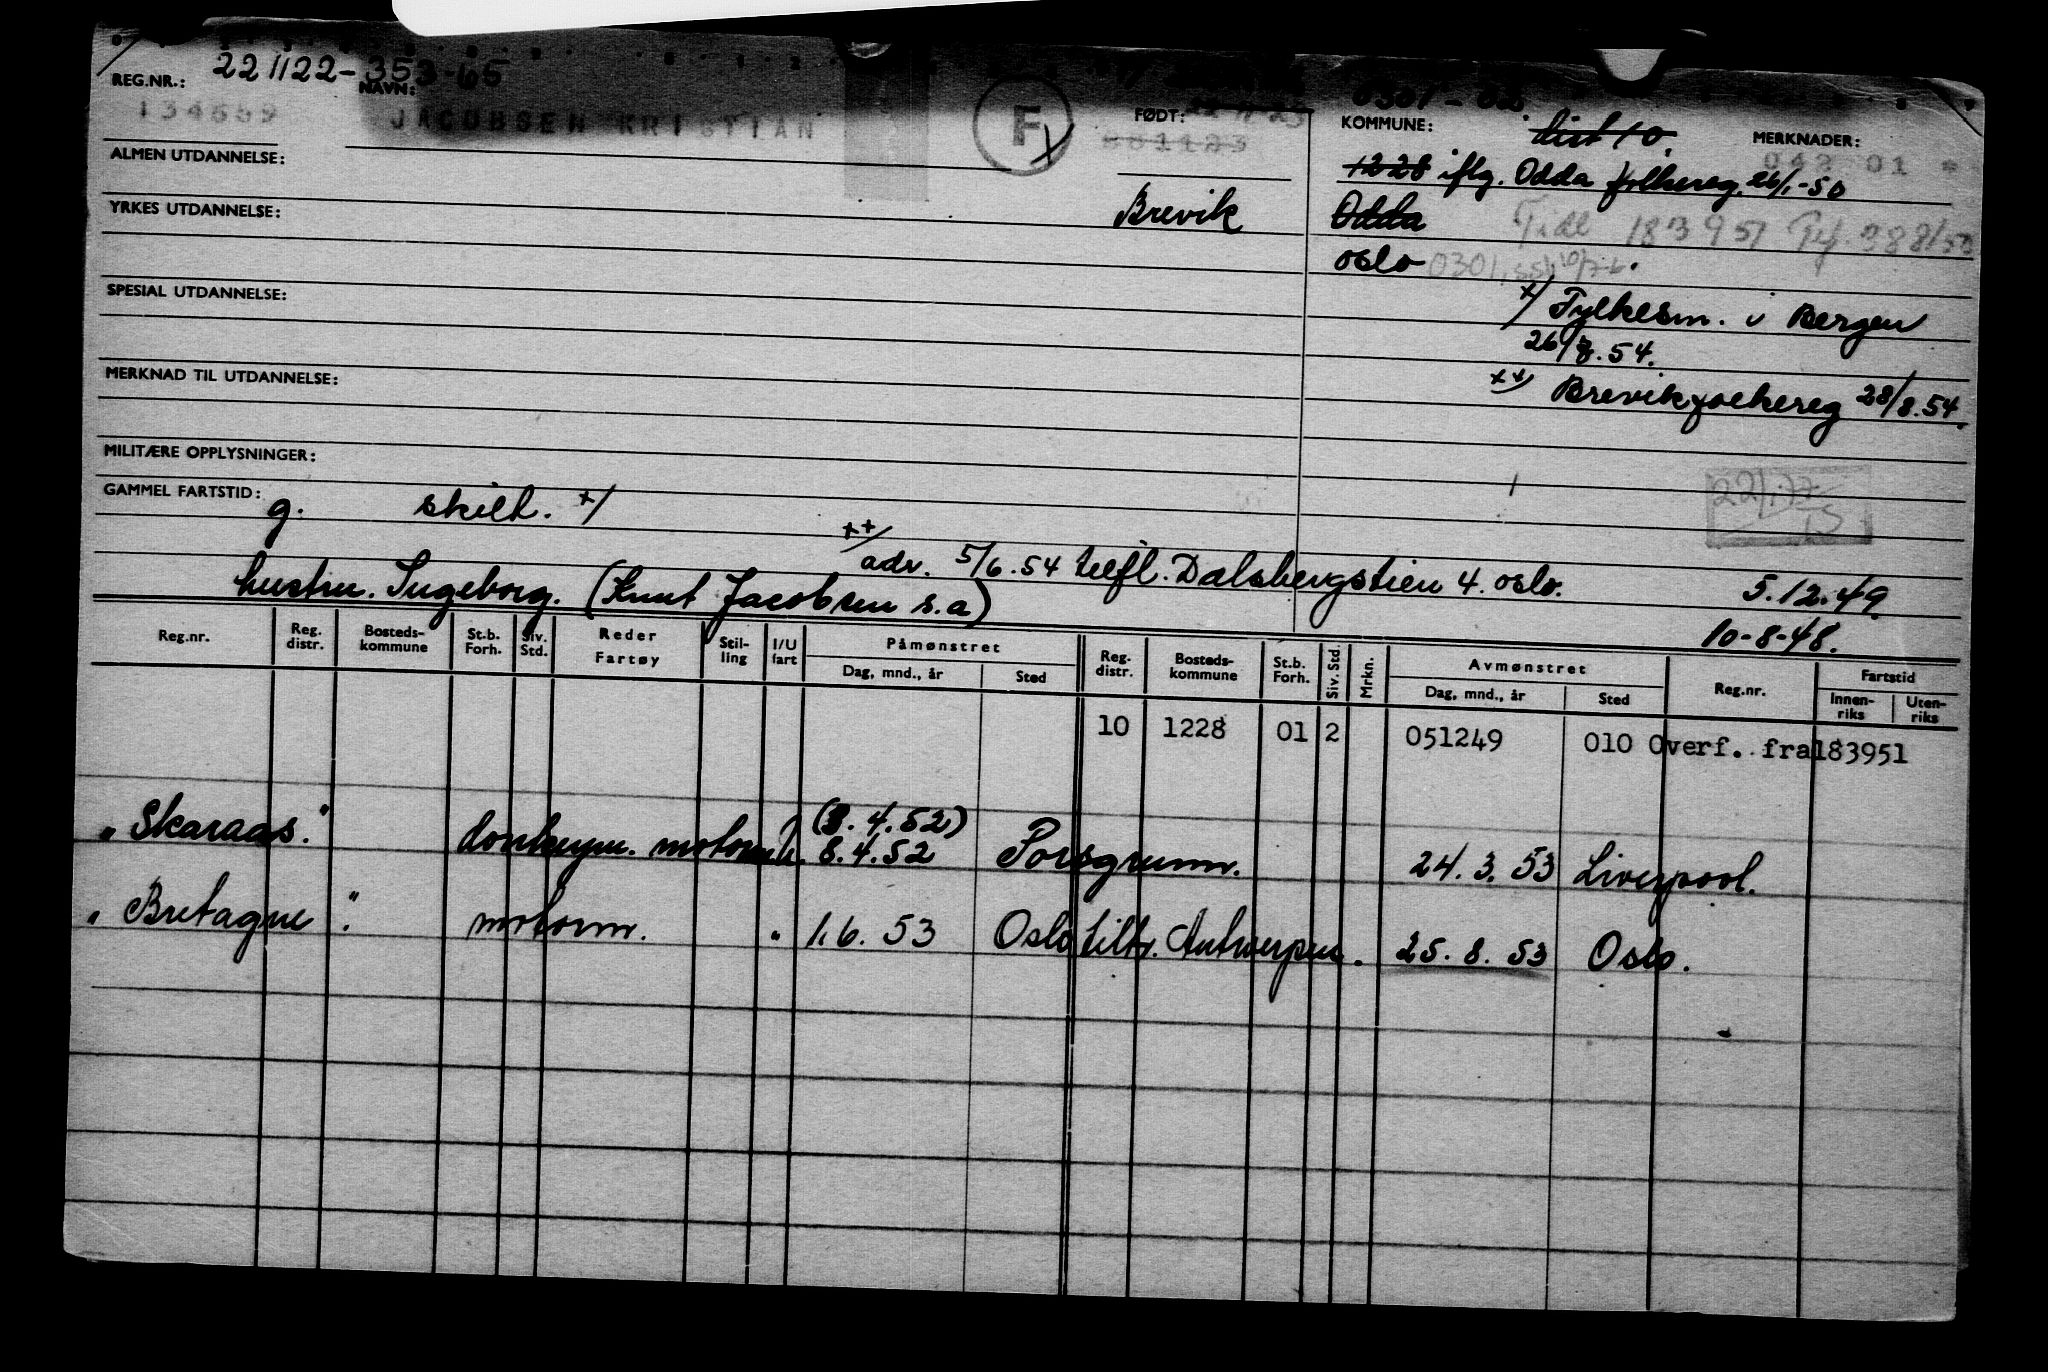 REG.NR.: 221122-353-65
NAVN: JACOBSEN KRISTIAN
134689
F x
FØDT: 22 11 23
Brevik
KOMMUNE: 0301
dist 10.
MERKNADER:
042 01
1228 iflg. Odda folkereg. 26/1-50
Odda Tidl 183951
Oslo 0301
x/ Fylkesm. i Bergen
26/8.54.
xx/ Brevik folkereg 28/8.54.
ALMEN UTDANNELSE:
YRKES UTDANNELSE:
SPESIAL UTDANNELSE:
MERKNAD TIL UTDANNELSE:
MILITÆRE OPPLYSNINGER:
GAMMEL FARTSTID:
g. skilt. x/
xx/ adr. 5/6.54 telfl. Dalsbergstien 4. Oslo. 5.12.49
hustru. Ingeborg. (Knut Jacobsen s.a)
10-8-48.
Reg.nr. Reg. distr. Bosteds-kommune St.b. Forh. Siv. Std. Reder Fartøy Stil-ling I/U fart Påmønstret Dag, mnd., år Sted Reg. distr. Bosteds-kommune St.b. Forh. Siv. Std. Mrkn. Avmønstret Dag, mnd., år Sted Reg.nr. Fartstid Innen-riks Uten-riks
10 1228 01 2 051249 010 Overf. fra183951
(8.4.52)
"Skaraas." donkeym. motorm. U. 8.4.52 Porsgrunn. 24.3.53 Liverpool.
"Bretagne". motorm. " 1.6.53 Oslo tiltr. Antwerpen. 25.8.53 Oslo.